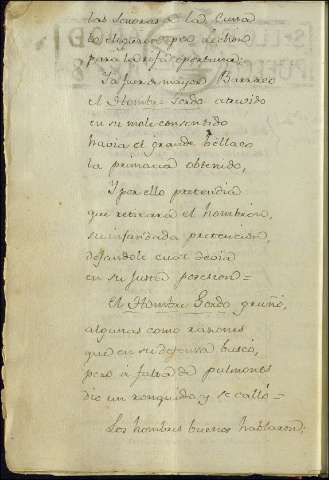 las señoras a la Cura
lo eligieron por lechon
para la rifa oportuna.
Ya fuera mayor Barraco
el Hombre Gordo atrevido
en su mole consentido
havia el grande bellaco
la primacia obtenido,
Y por ello pretendia
que retirara el hombrón,
su infundada pretencion,
dejandole cual devia
en su justa posesion =
El Hombre Gordo gruñó,
algunas como razones
que en su defensa buscó,
pero a falta de pulmones
dio un ronquido, y se calló =
Los hombres buenos hablaron;